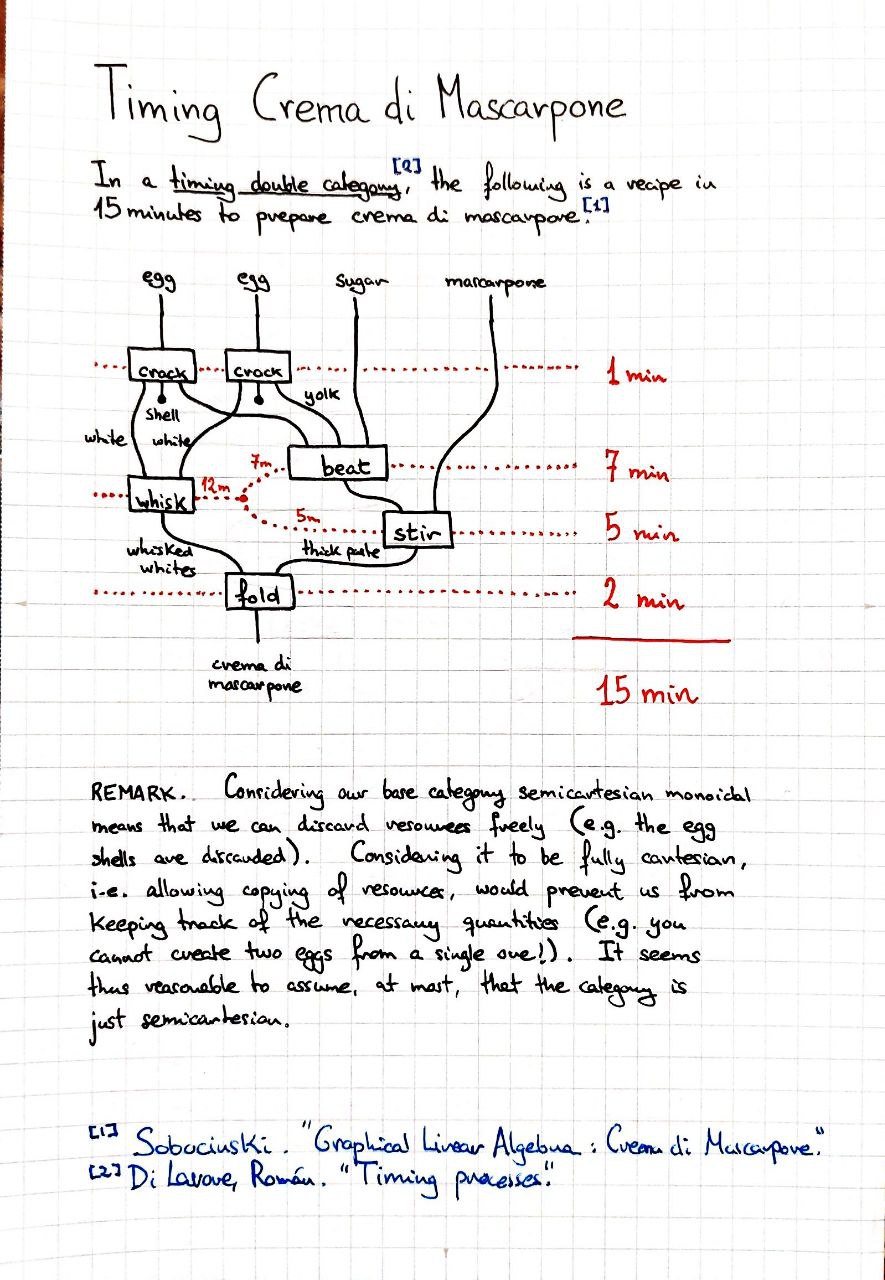 Timing Crema di Mascarpone
In a timing double category,[2] the following is a recipe in
15 minutes to prepare crema di mascarpone.[1]
egg egg sugar mascarpone
crack crack 1 min
shell yolk
white white
7m beat 7 min
whisk 12m
5m stir 5 min
whisked whites thick paste
fold 2 min
crema di
mascarpone
15 min
REMARK. Considering our base category semicartesian monoidal
means that we can discard resources freely (e.g. the egg
shells are discarded). Considering it to be fully cartesian,
i.e. allowing copying of resources, would prevent us from
keeping track of the necessary quantities (e.g. you
cannot create two eggs from a single one!). It seems
thus reasonable to assume, at most, that the category is
just semicartesian.
[1] Sobociński. "Graphical Linear Algebra: Crema di Mascarpone."
[2] Di Lavore, Román. "Timing processes."